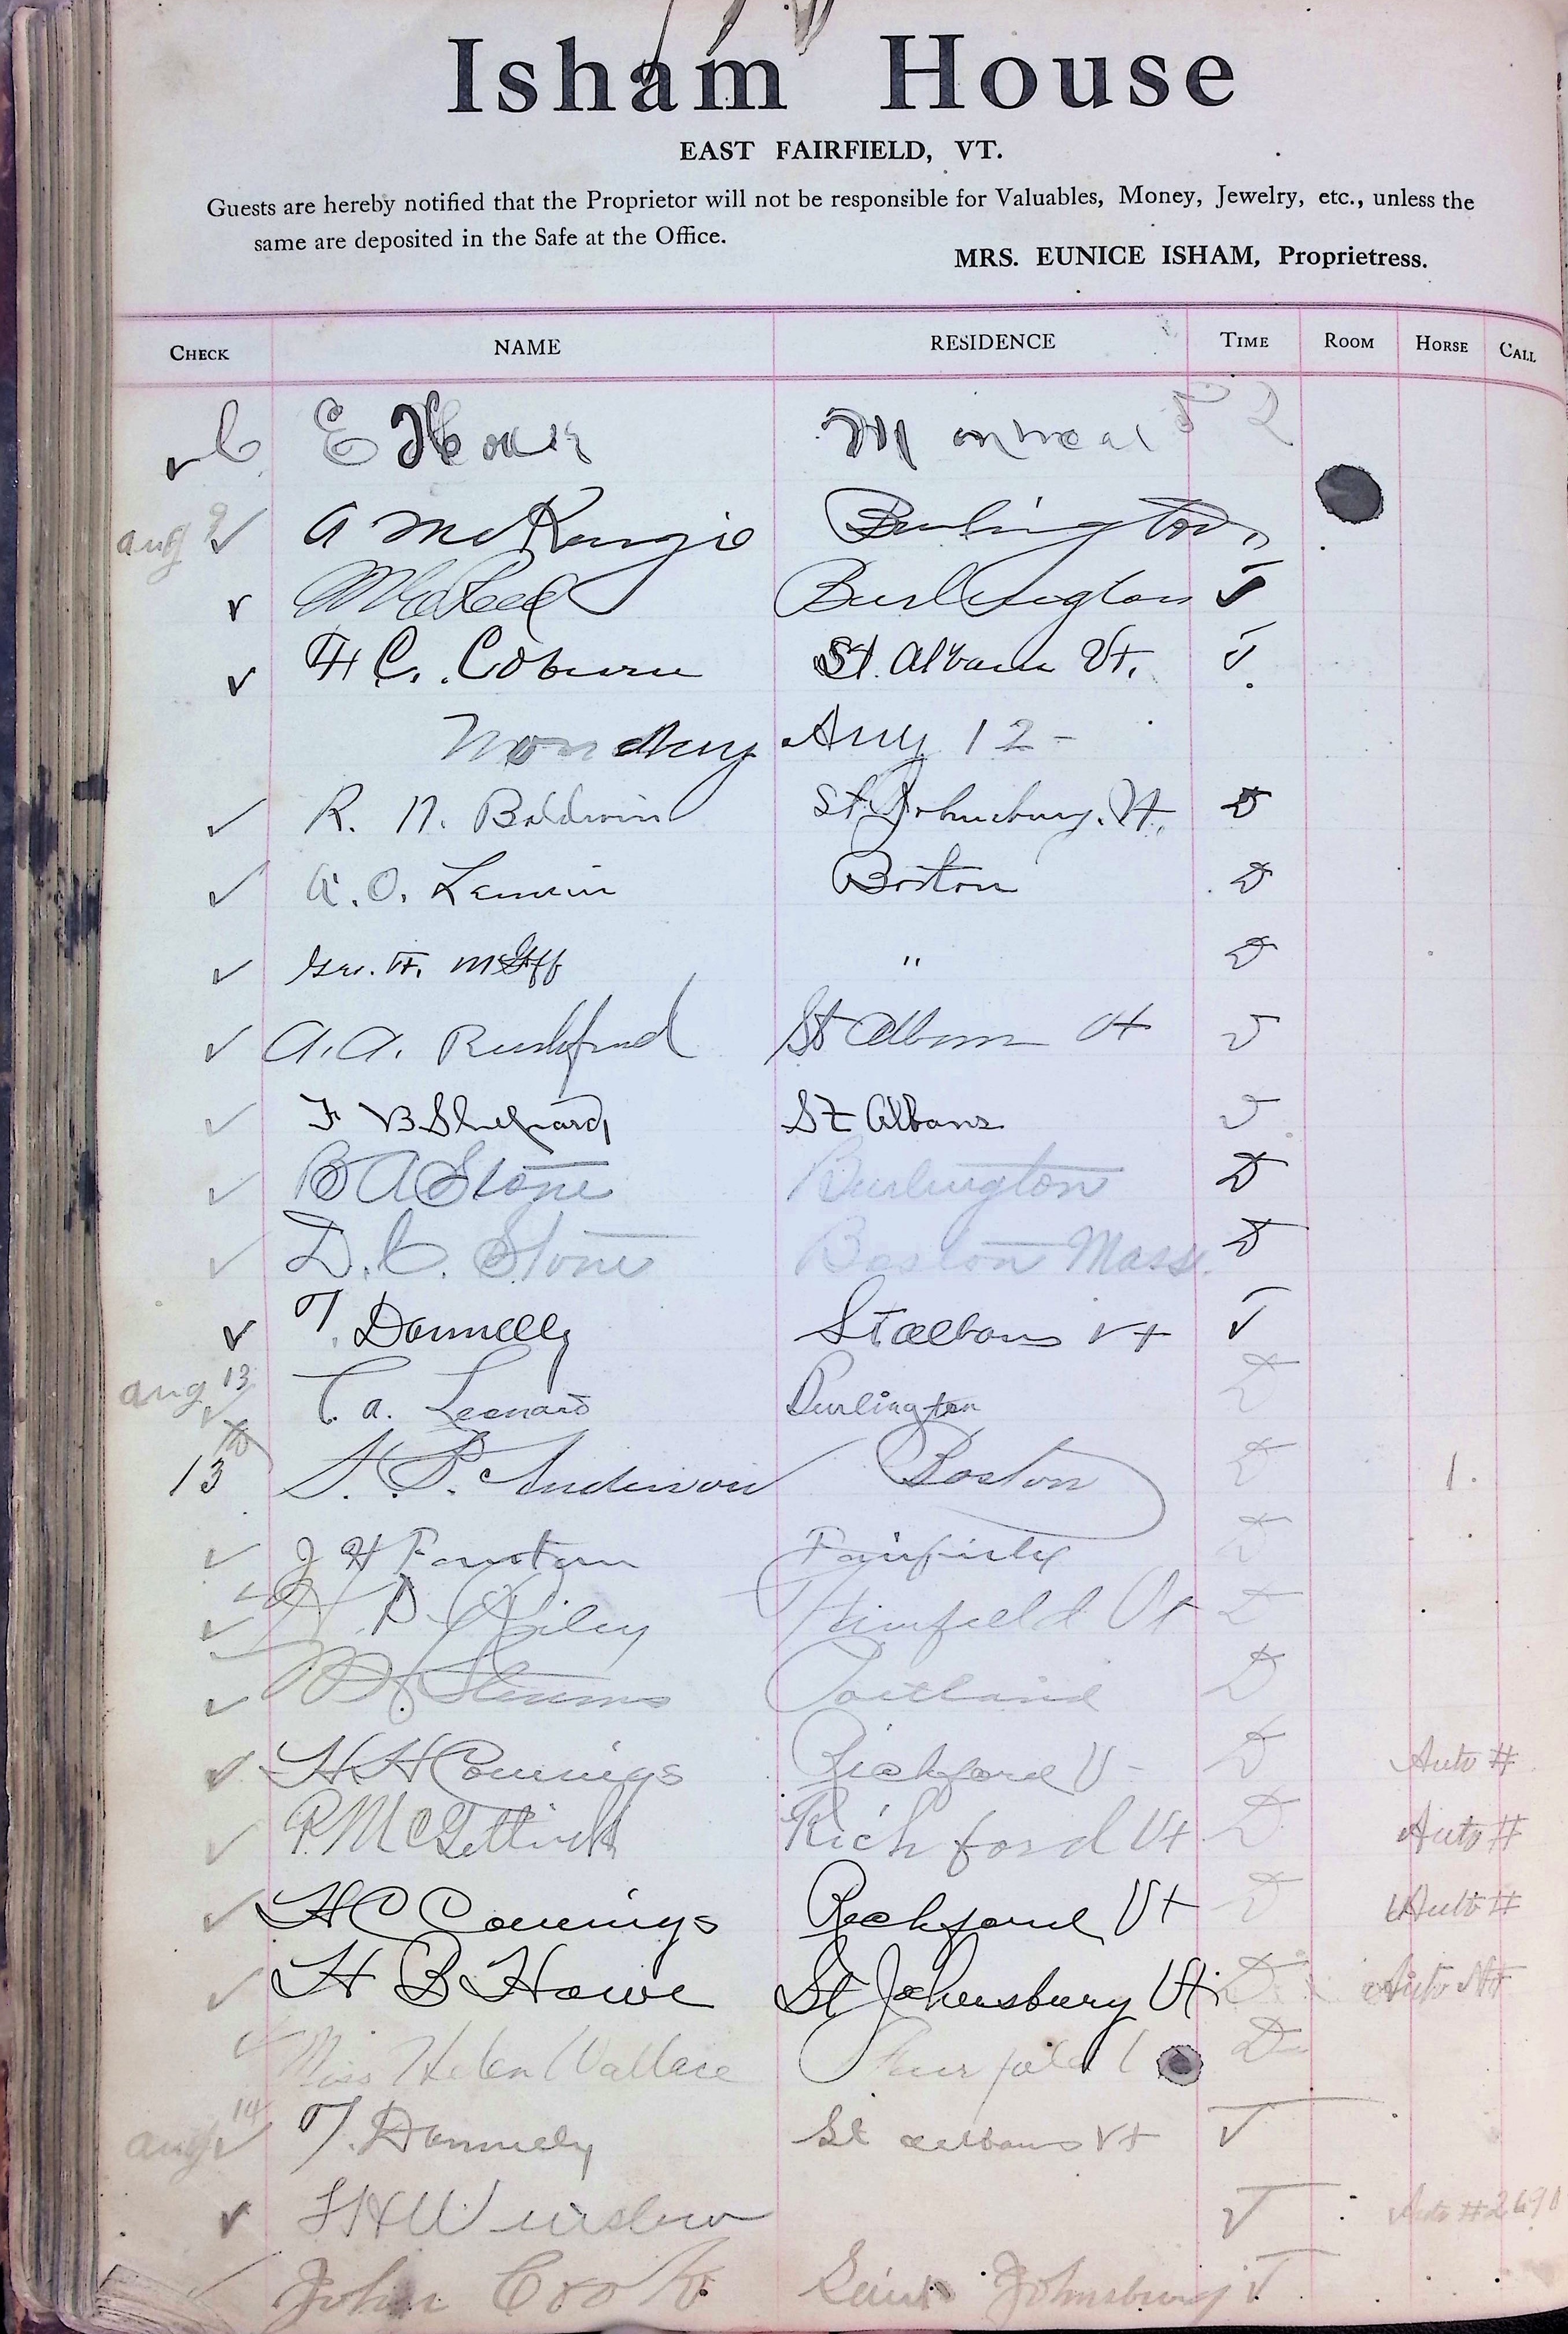 Isham House
EAST FAIRFIELD, VT.
Guests are hereby notified that the Proprietor will not be responsible for Valuables, Money, Jewelry, etc., unless the
same are deposited in the Safe at the Office.
MRS. EUNICE ISHAM, Proprietress.
CHECK NAME RESIDENCE TIME ROOM HORSE CALL
E Montreal
aug A McKenzie Burlington
Burlington
H C. Coburn St. Albans Vt.
Monday Aug 12-
R. N. Baldwin St. Johnsbury. Vt. D
A. O. Boston D
Geo. H. " D
A. A. Rushford St Albans Vt
F B Shepard St Albans
B A Stone Burlington D
D. C. Stone Boston Mass. D
T. Donnelly St albans Vt
aug 13 C. a. Leonard Burlington D
13 S. P. Anderson Boston D 1.
J H Fairfield D
P Riley Fairfield Vt D
Stearns Portland D
H H Comings Richford V- D Auto #
P. McGettrick Richford Vt D Auto #
H C Comings Richford Vt D Auto #
H B Howe St Johnsbury Vt. D Auto
Miss Helen Wallace D
aug 14 T. Donnelly St albans Vt
Winslow Auto #
John Cook Saint Johnsbury